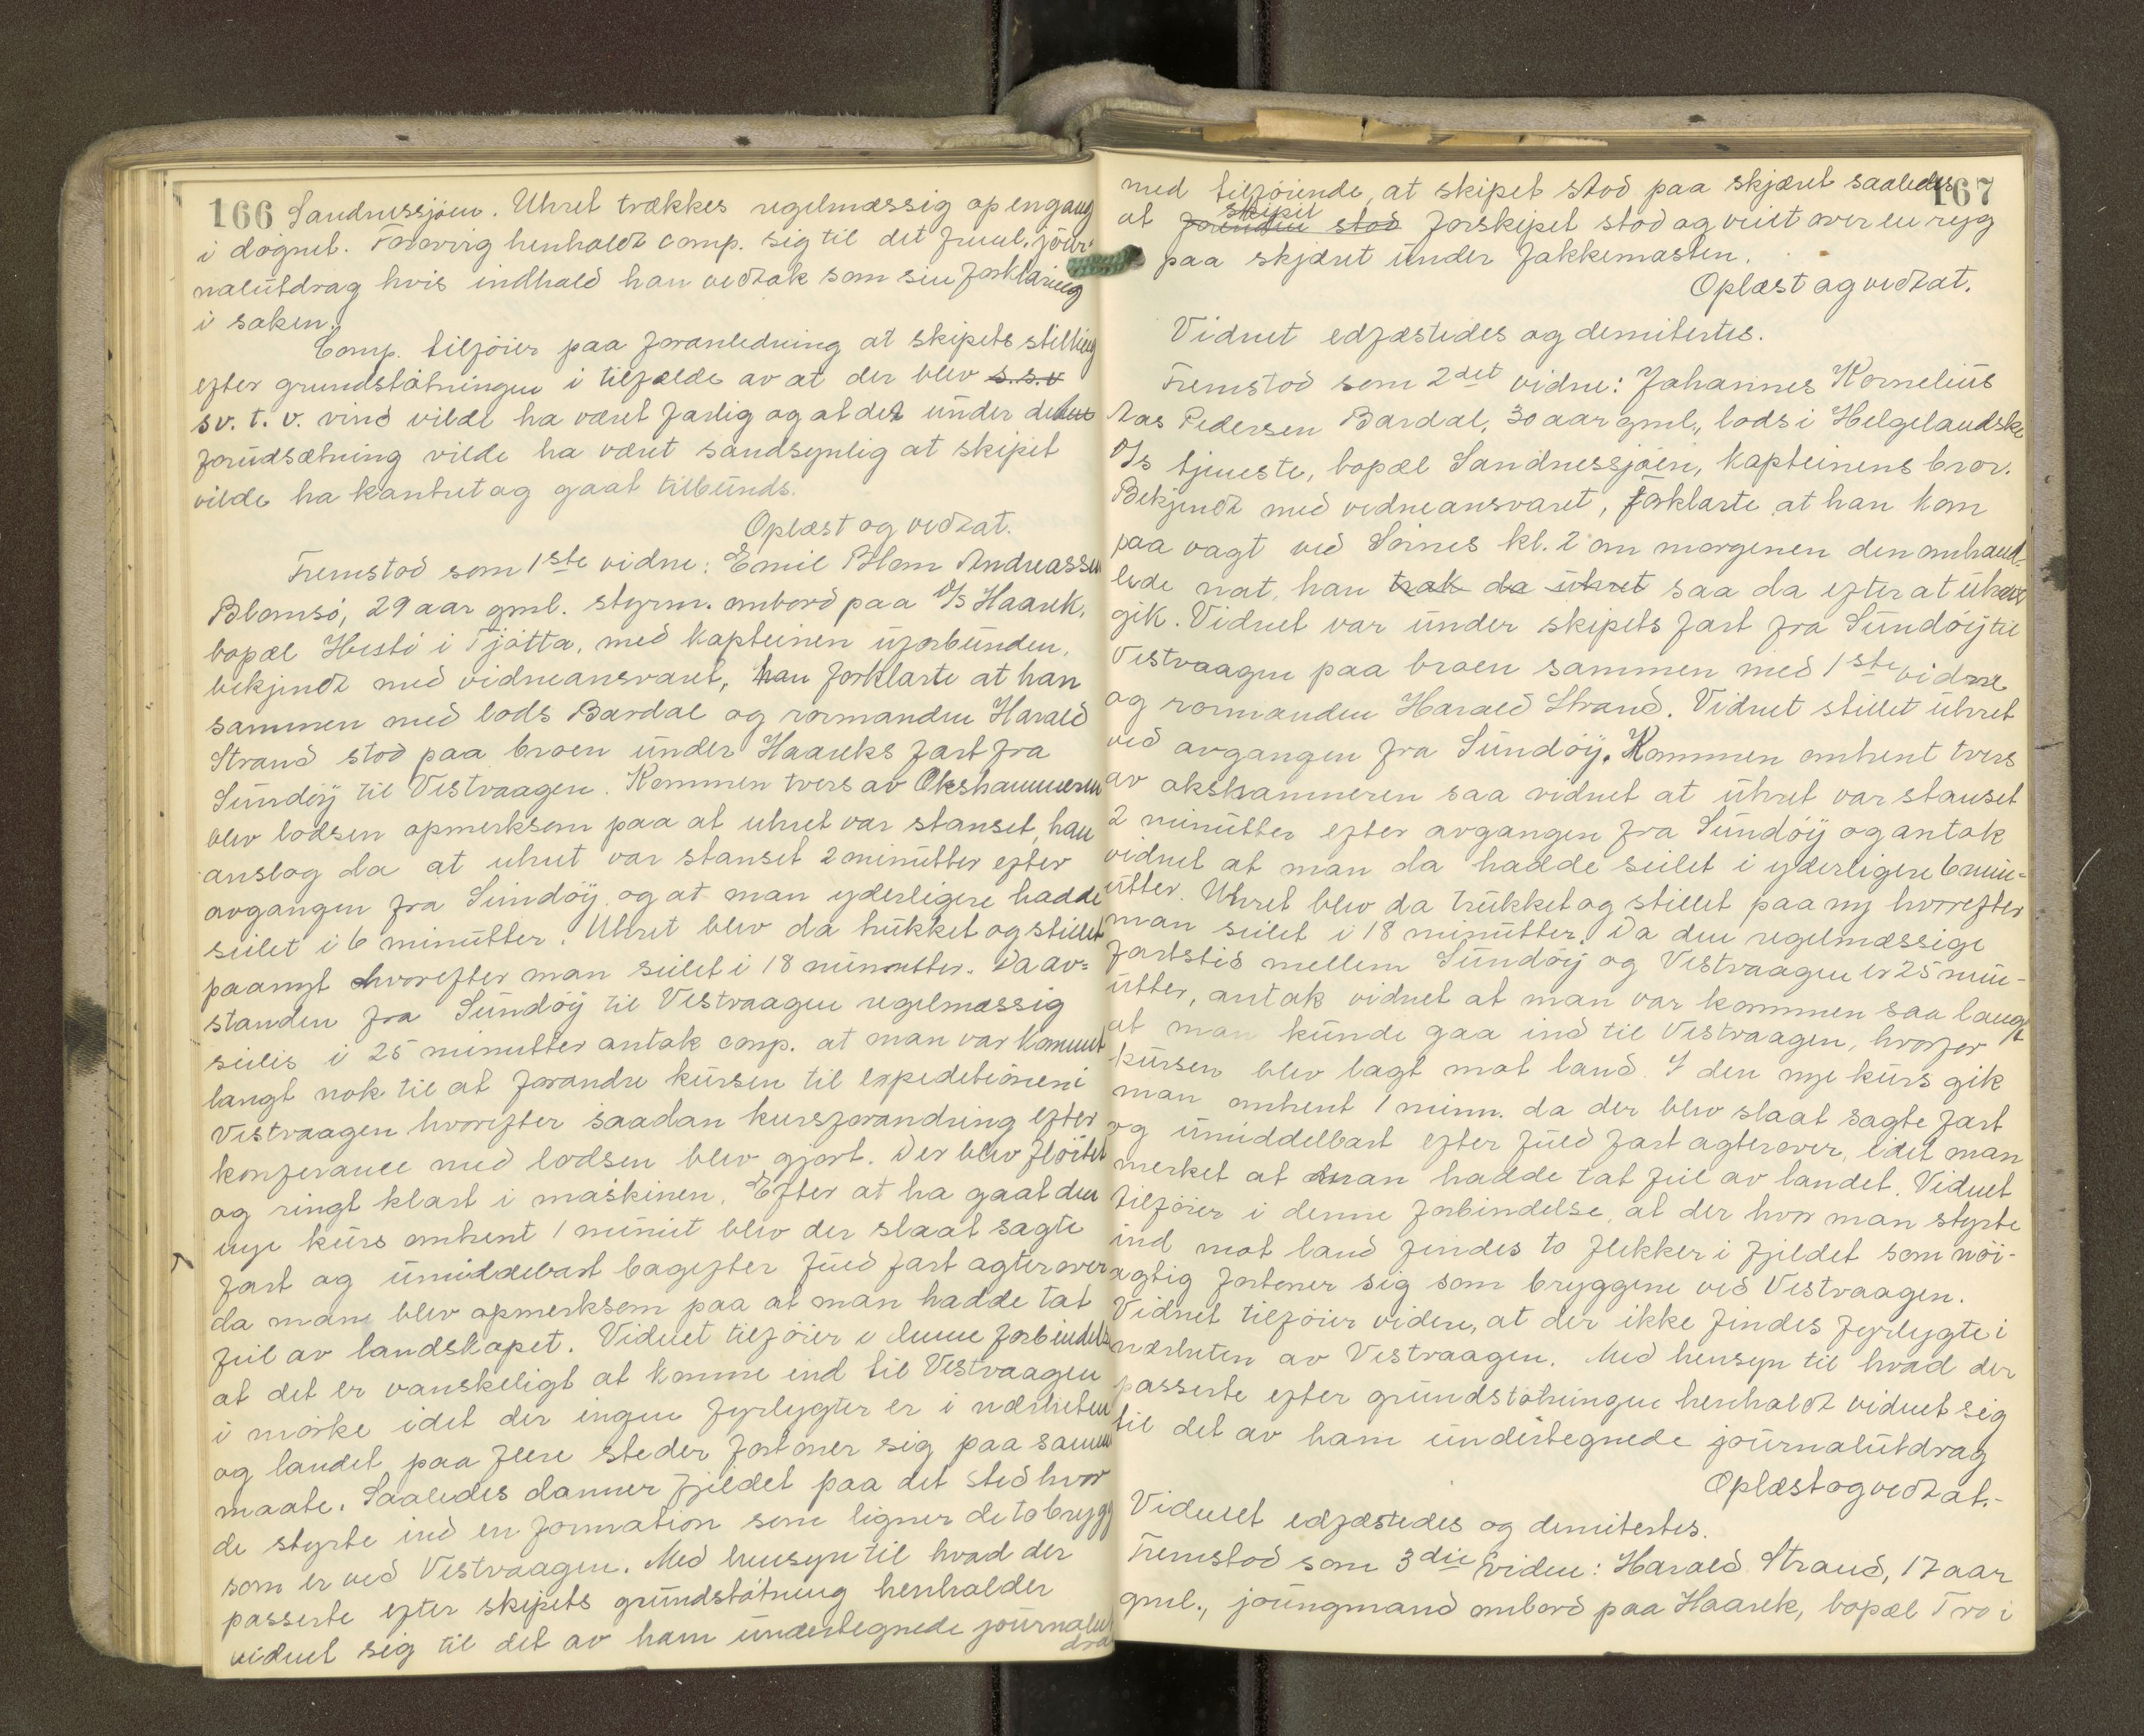 166 Sandnessjøen. Uhret trækkes regelmæssig op engang
i døgnet. Forøvrig henholdt comp. sig til det freml. jour-
nalutdrag hvis indhold han vedtok som sin forklaring
i saken.
Comp. tilføier paa foranledning at skipets stilling
efter grundstøtningen i tilfælde av at der blev s.s.v
sv. t. v. vind vilde ha været farlig og at det under denne
forudsætning vilde ha været sandsynlig at skipet
vilde ha kantret og gaat tilbunds.
Oplæst og vedtat.
Fremstod som 1ste vidne: Emil Blom Andreassen
Blomsø, 29 aar gml. styrm. ombord paa D/S Haarek,
bopæl Hestø i Tjøtta, med kapteinen uforbunden,
bekjendt med vidneansvaret, han forklarte at han
sammen med lods Bardal og rormanden Harald
Strand stod paa broen under Haareks fart fra
Sundøy til Vistvaagen. Kommen tvers av Okshammeren
blev lodsen opmerksom paa at uhret var stanset, han
anslog da at uhret var stanset 2 minutter efter
avgangen fra Sundøy og at man yderligere hadde
seilet i 6 minutter. Uhret blev da trukket og stillet
paanyt hvorefter man seilet i 18 minutter. Da av-
standen fra Sundøy til Vistvaagen regelmæssig
seiles i 25 minutter antok comp. at man var kommet
langt nok til at forandre kursen til expeditionen i
Vistvaagen hvorefter saadan kursforandring efter
konferance med lodsen blev gjort. Der blev fløitet
og ringt klart i maskinen. Efter at ha gaat den
nye kurs omtrent 1 minut blev der slaat sagte
fart og umiddelbart bagefter fuld fart agterover
da man blev opmerksom paa at man hadde tat
feil av landskapet. Vidnet tilføier i denne forbindelse
at det er vanskeligt at komme ind til Vistvaagen
i mørke idet der ingen fyrlygter er i nærheten
og landet paa flere steder fortoner sig paa samme
maate. Saaledes danner fjeldet paa det sted hvor
de styrte ind en formation som ligner de to brygger
som er ved Vistvaagen. Med hensyn til hvad der
passerte efter skipets grundstøtning henholder
vidnet sig til det av ham undertegnede journalut
drag
167
med tilføiende, at skipet stod paa skjæret saaledes
skipet
at forenden stod forskipet stod og veiet over en ryg
paa skjæret under fokkemasten.
Oplæst og vedtat.
Vidnet edfæstedes og demitertes.
Fremstod som 2det vidne: Johannes Kornelius
Aas Pedersen Bardal, 30 aar gml., lods i Helgelandske
D/s tjeneste, bopæl Sandnessjøen, kapteinens bror.
Bekjendt med vidneansvaret, forklarte at han kom
paa vagt ved Sørnes kl. 2 om morgenen den omhand-
lede nat, han trak da uhret saa da efter at uhret
gik. Vidnet var under skipets fart fra Sundøy til
Vistvaagen paa broen sammen med 1ste vidne
og rormanden Harald Strand. Vidnet stillet uhret
ved avgangen fra Sundøy. Kommen omtrent tvers
av okshammeren saa vidnet at uhret var stanset
2 minutter efter avgangen fra Sundøy og antok
vidnet at man da hadde seilet i yderligere 6 min-
utter. Uhret blev da trukket og stillet paa ny hvorefter
man seilet i 18 minutter. Da den regelmæssige
fartstid mellem Sundøy og Vistvaagen er 25 min-
utter, antok vidnet at man var kommen saa langt
at man kunde gaa ind til Vistvaagen, hvorfor
kursen blev lagt mot land. I den nye kurs gik
man omtrent 1 minn. da der blev slaat sagte fart
og umiddelbart efter fuld fart agterover, idet man
merket at man hadde tat feil av landet. Vidnet
tilføier i denne forbindelse, at der hvor man styrte
ind mot land findes to flekker i fjeldet som nøi-
agtig fortoner sig som bryggene ved Vistvaagen.
Vidnet tilføier videre, at der ikke findes fyrlygte i
nærheten av Vistvaagen. Med hensyn til hvad der
passerte efter grundstøtningen henholdt vidnet sig
til det av ham undertegnede journalutdrag
Oplæst og vedtat.-
Vidnet edfæstedes og demitertes.
Fremstod som 3die vidne: Harald Strand, 17 aar
gml., joungmand ombord paa Haarek, bopæl Tro i